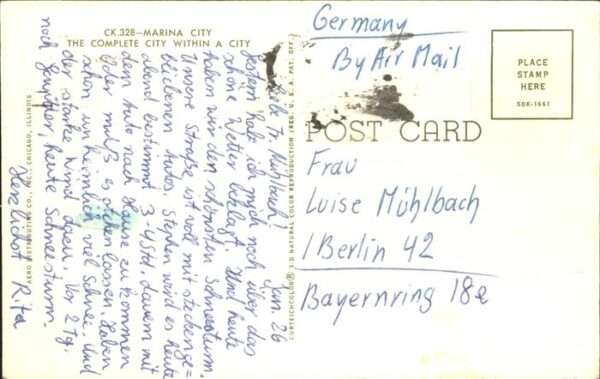 CK.328—MARINA CITY
THE COMPLETE CITY WITHIN A CITY
Jan. 26
Liebe Fr. Mühlbach!
Gestern hab ich mich noch über das
schöne Wetter beklagt. Und heute
haben wir den schönsten Schneesturm.
Unsere Straße ist voll mit steckenge=
bliebenen Autos. Stephan wird es heute
abend bestimmt 3-4 Std. dauern mit
dem Auto nach Hause zu kommen
oder muß es stehen lassen. Haben
schon unheimlich viel Schnee. Und
der starke Wind dazu. Vor 2 Tg.
noch Gewitter, heute Schneesturm.
Herzlichst Rita
AERO DISTRIBUTING CO., INC., CHICAGO, ILLINOIS
CURTEICHCOLOR® 3-D NATURAL COLOR REPRODUCTION (REG. U. S. A. PAT. OFF.)
Germany
By Air Mail
PLACE
STAMP
HERE
SDK-1661
POST CARD
Frau
Luise Mühlbach
1 Berlin 42
Bayernring 18a